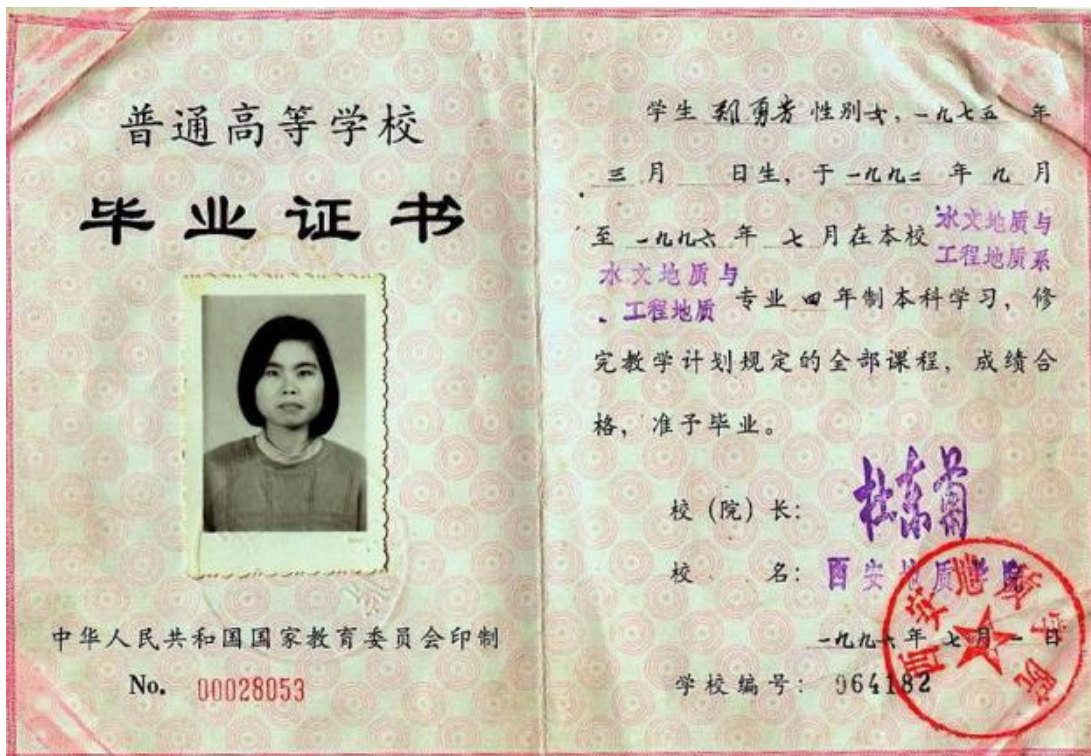 普通高等学校
毕业证书
中华人民共和国国家教育委员会印制
No. 00028053
学生 郑勇芳 性别女,一九七五 年
三月 日生,于一九九二 年 九 月
至 一九九六 年 七 月在本校 水文地质与工程地质系
水文地质与工程地质 专业 四 年制本科学习,修
完教学计划规定的全部课程,成绩合
格,准予毕业。
校(院)长:
校 名:西安地质学院
一九九六年 七 月 一 日
学校编号:964182
西安地质学院